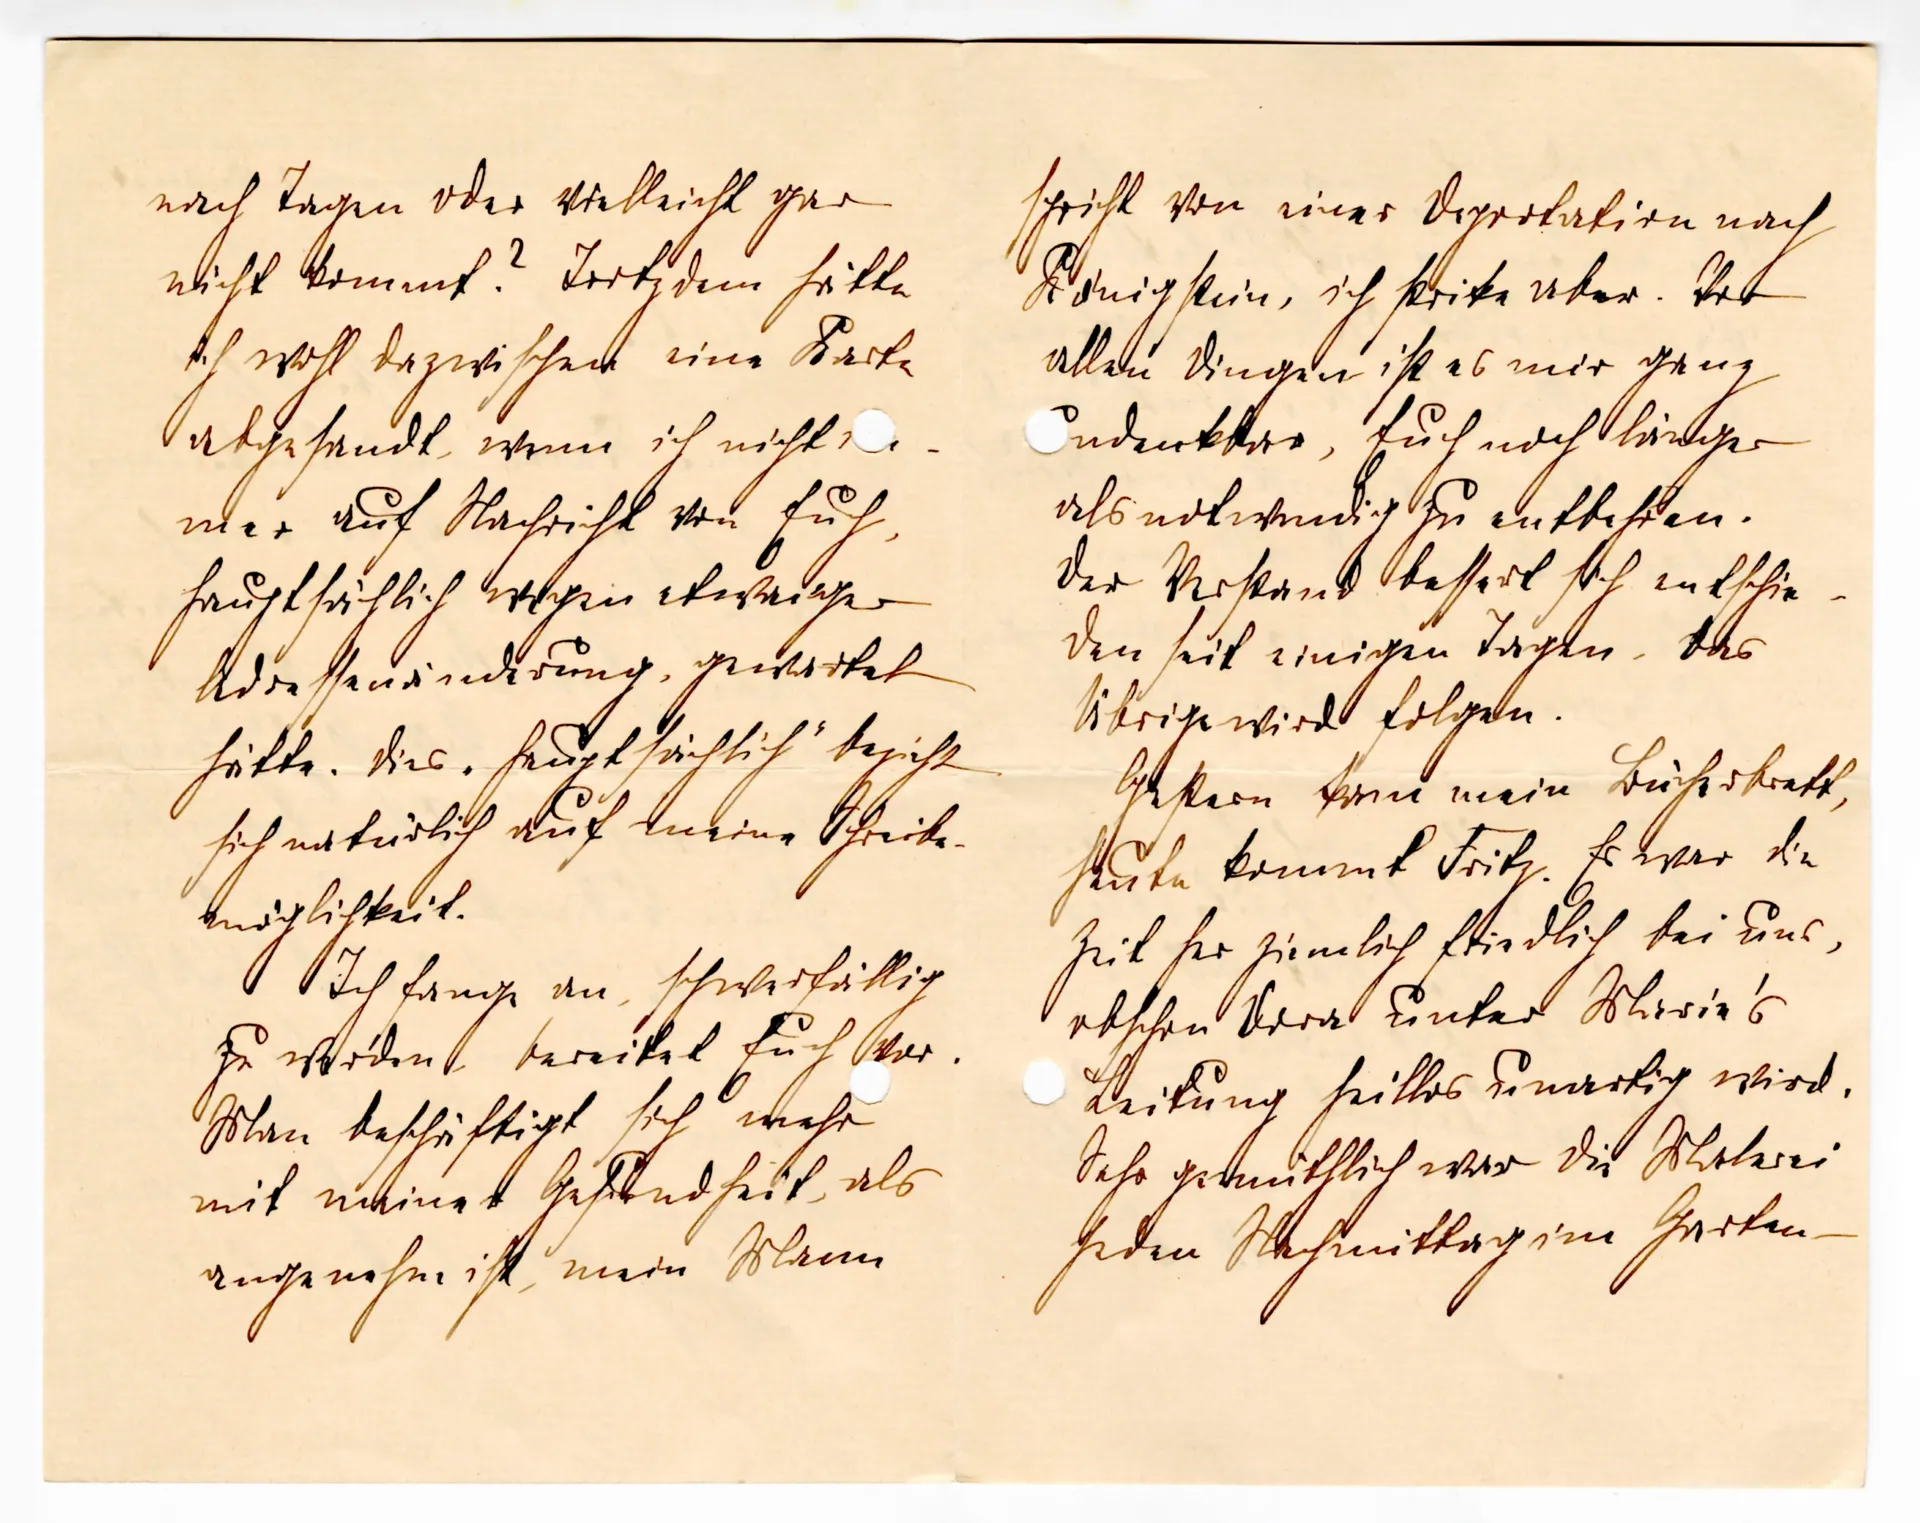 nach Tagen oder vielleicht gar
nicht kommt? Trotzdem hätte
ich wohl dazwischen eine Karte
abgesandt, wenn ich nicht im-
mer auf Nachricht von Euch,
hauptsächlich wegen etwaiger
Adressenänderung, gewartet
hätte. Dies „hauptsächlich" bezieht
sich natürlich auf meine Schreibe-
möglichkeit.
Ich fange an, schwerfällig
zu werden, bereitet Euch vor.
Man beschäftigt sich mehr
mit meiner Gesundheit, als
angenehm ist, mein Mann
spricht von einer Deportation nach
Königstein, ich streike aber. Vor
allen Dingen ist es mir ganz
undenkbar, Euch noch länger
als notwendig zu entbehren.
Der Verstand bessert sich entschie-
den seit einigen Tagen. Das
Übrige wird folgen.
Gestern kam mein Bücherbrett,
heute kommt Fritz. Es war die
Zeit her ziemlich friedlich bei uns,
obschon Dora unter Marie's
Leitung heillos unartig wird.
Sehr gemüthlich war die Malerei
jeden Nachmittag im Garten-